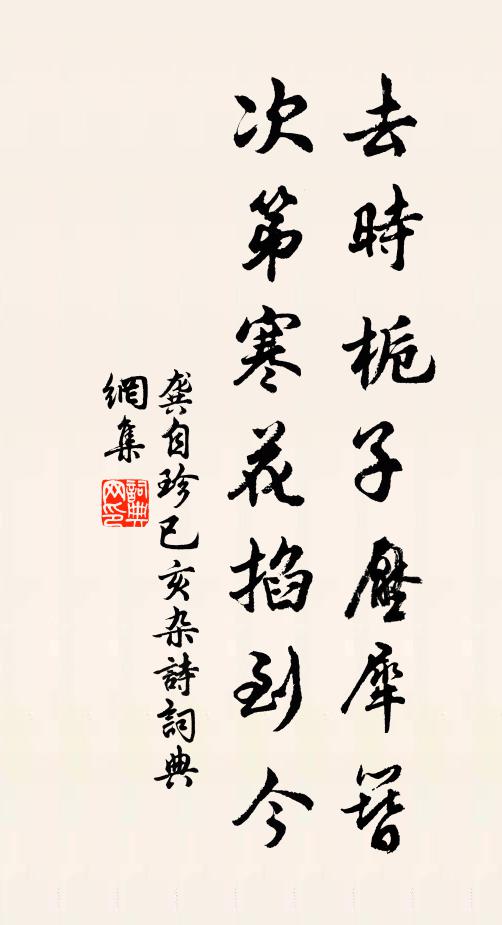 去時栀子壓犀簪
次第寒花掐到今
龔自珍已亥杂詩詞典
網集
詞典
网印